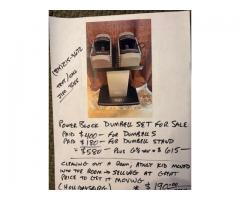 TEXT/CALL
POWER BLOCK DUMBELL SET FOR SALE
PAID $400 - FOR DUMBELLS
PAID $180 - FOR DUMBELL STAND
$580 - PLUS 6% TAX = $615 -
CLEANING OUT A ROOM, ADULT KID MOVED
INTO THE ROOM - SELLING AT GREAT
PRICE TO GET IT MOVING
(HOLLIDAYSBURG) $190.00